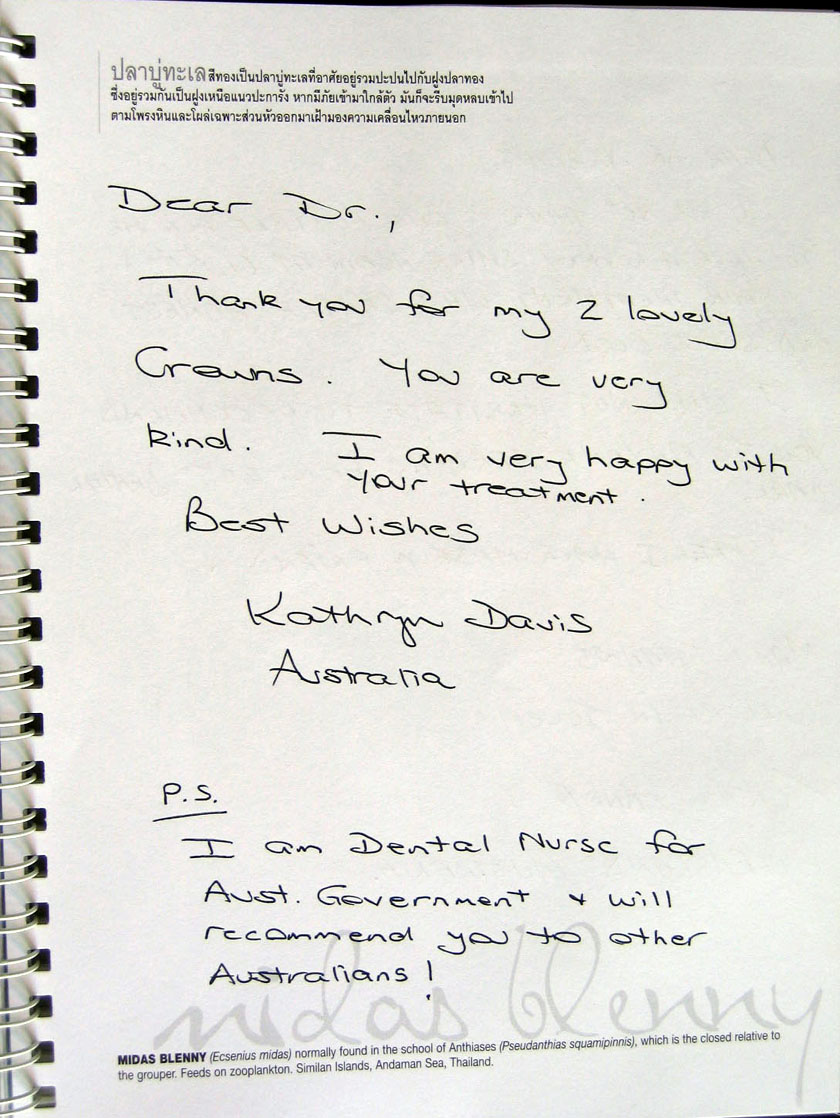 ปลาบู่ทะเลสีทองเป็นปลาบู่ทะเลที่อาศัยอยู่รวมปะปนไปกับฝูงปลาทอง
ซึ่งอยู่รวมกันเป็นฝูงเหนือแนวปะการัง หากมีภัยเข้ามาใกล้ตัว มันก็จะรีบมุดหลบเข้าไป
ตามโพรงหินและโผล่เฉพาะส่วนหัวออกมาเฝ้ามองความเคลื่อนไหวภายนอก
Dear Dr.,
Thank you for my 2 lovely
Crowns. You are very
kind. I am very happy with
your treatment.
Best Wishes
Kathryn Davis
Australia
P.S.
I am Dental Nurse for
Aust. Government & will
recommend you to other
Australians!
midas blenny
MIDAS BLENNY (Ecsenius midas) normally found in the school of Anthiases (Pseudanthias squamipinnis), which is the closed relative to
the grouper. Feeds on zooplankton. Similan Islands, Andaman Sea, Thailand.